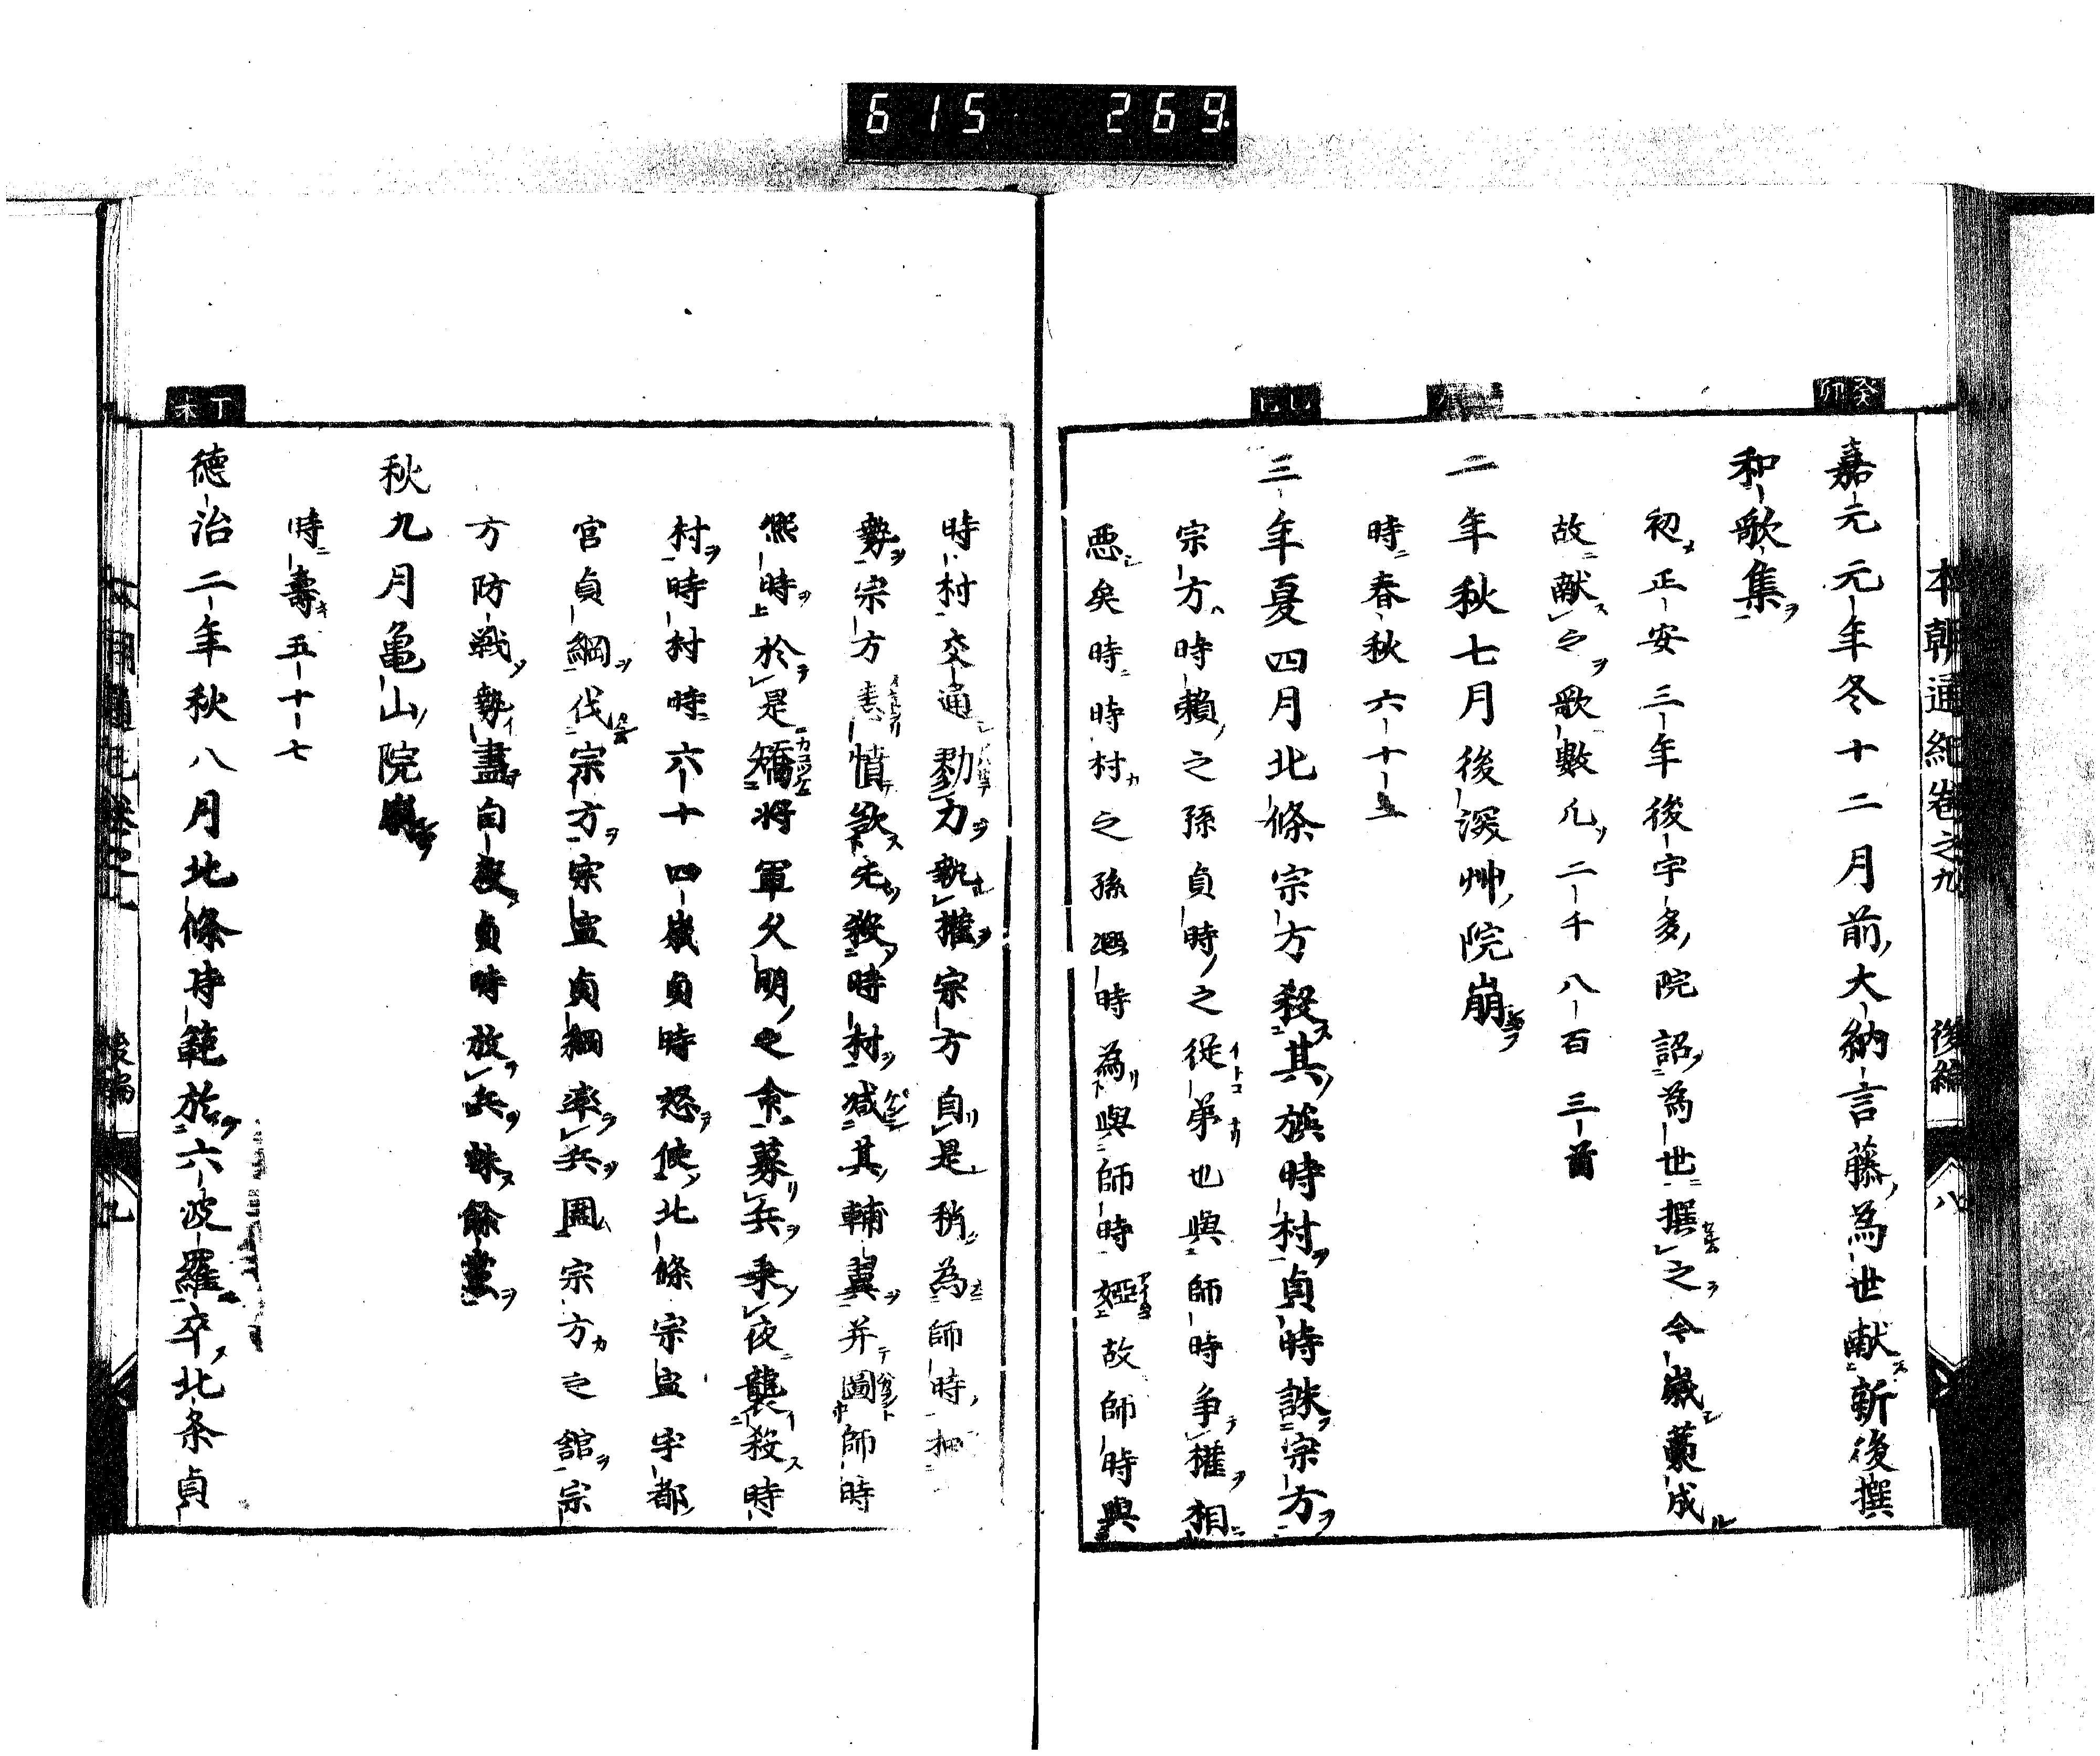 615 269.
本朝通紀卷之九 後編 八
癸卯
嘉元元年冬十二月前大納言藤為世献新後撰
和歌集
初正安三年後宇多院詔為世撰之今歳藁成
故献之歌數凡二千八百三首
二年秋七月後深艸院崩
時春秋六十
乙巳
三年夏四月北條宗方殺其族時村貞時誅宗方
宗方時頼之孫貞時之從弟也與師時争權相
悪矣時時村之孫凞時為與師時婭故師時與
時村交通勠力執權宗方自是稍為師時
勢宗方憤欲先殺時村减其輔翼并圖師時
熈時於是矯將軍久明之命募兵乗夜襲殺時
村時村時六十四歳貞時怒使北條宗宣宇都
宮貞綱伐宗方宗宣貞綱率兵圍宗方之舘宗
方防戦勢盡自殺貞時放兵誅餘黨
秋九月亀山院崩
時壽五十七
丁未
徳治二年秋八月北條時範於六波羅卒北条貞
後編 九